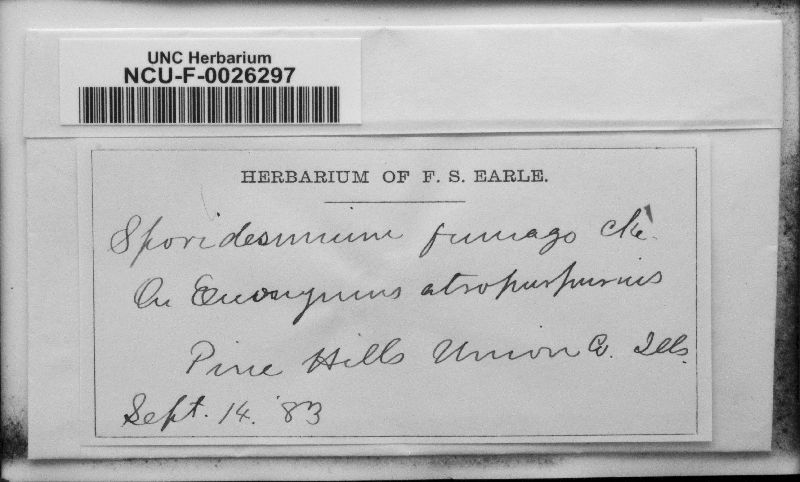 UNC Herbarium
NCU-F-0026297
HERBARIUM OF F. S. EARLE.
Sporidesmium fumago Cke.
On Euonymus atropurpurius
Pine Hills Union Co. Ills.
Sept. 14. '83